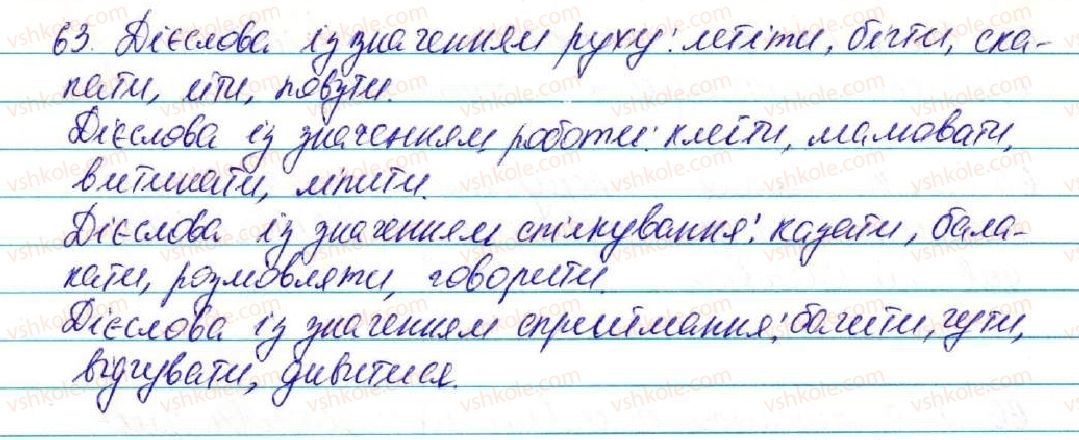 63. Дієслова із значенням руху: летіти, бігти, ска-
кати, іти, повзти.
Дієслова із значенням роботи: клеїти, малювати,
витинати, ліпити.
Дієслова із значенням спілкування: казати, бала-
кати, розмовляти, говорити.
Дієслова із значенням сприймання: бачити, чути,
відчувати, дивитися.